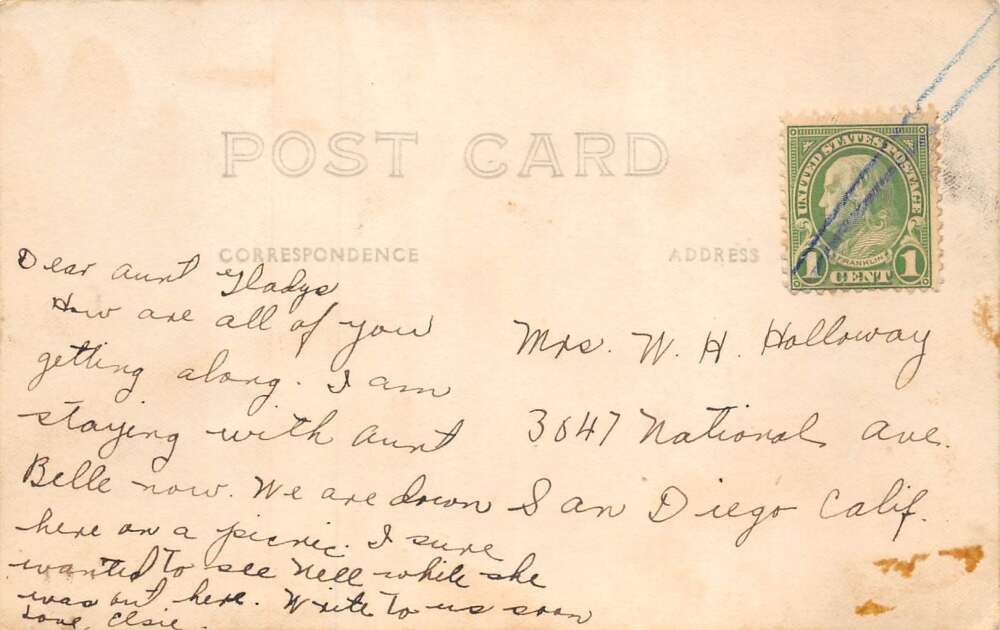 POST CARD
CORRESPONDENCE
ADDRESS
UNITED STATES POSTAGE
FRANKLIN
1 CENT 1
Dear Aunt Gladys
How are all of you
getting along. I am
staying with Aunt
Belle now. We are down
here on a picnic. I sure
wanted to see Nell while she
was out here. Write to us soon
Love, Elsie.
Mrs. W. H. Holloway
3647 National Ave.
San Diego Calif.